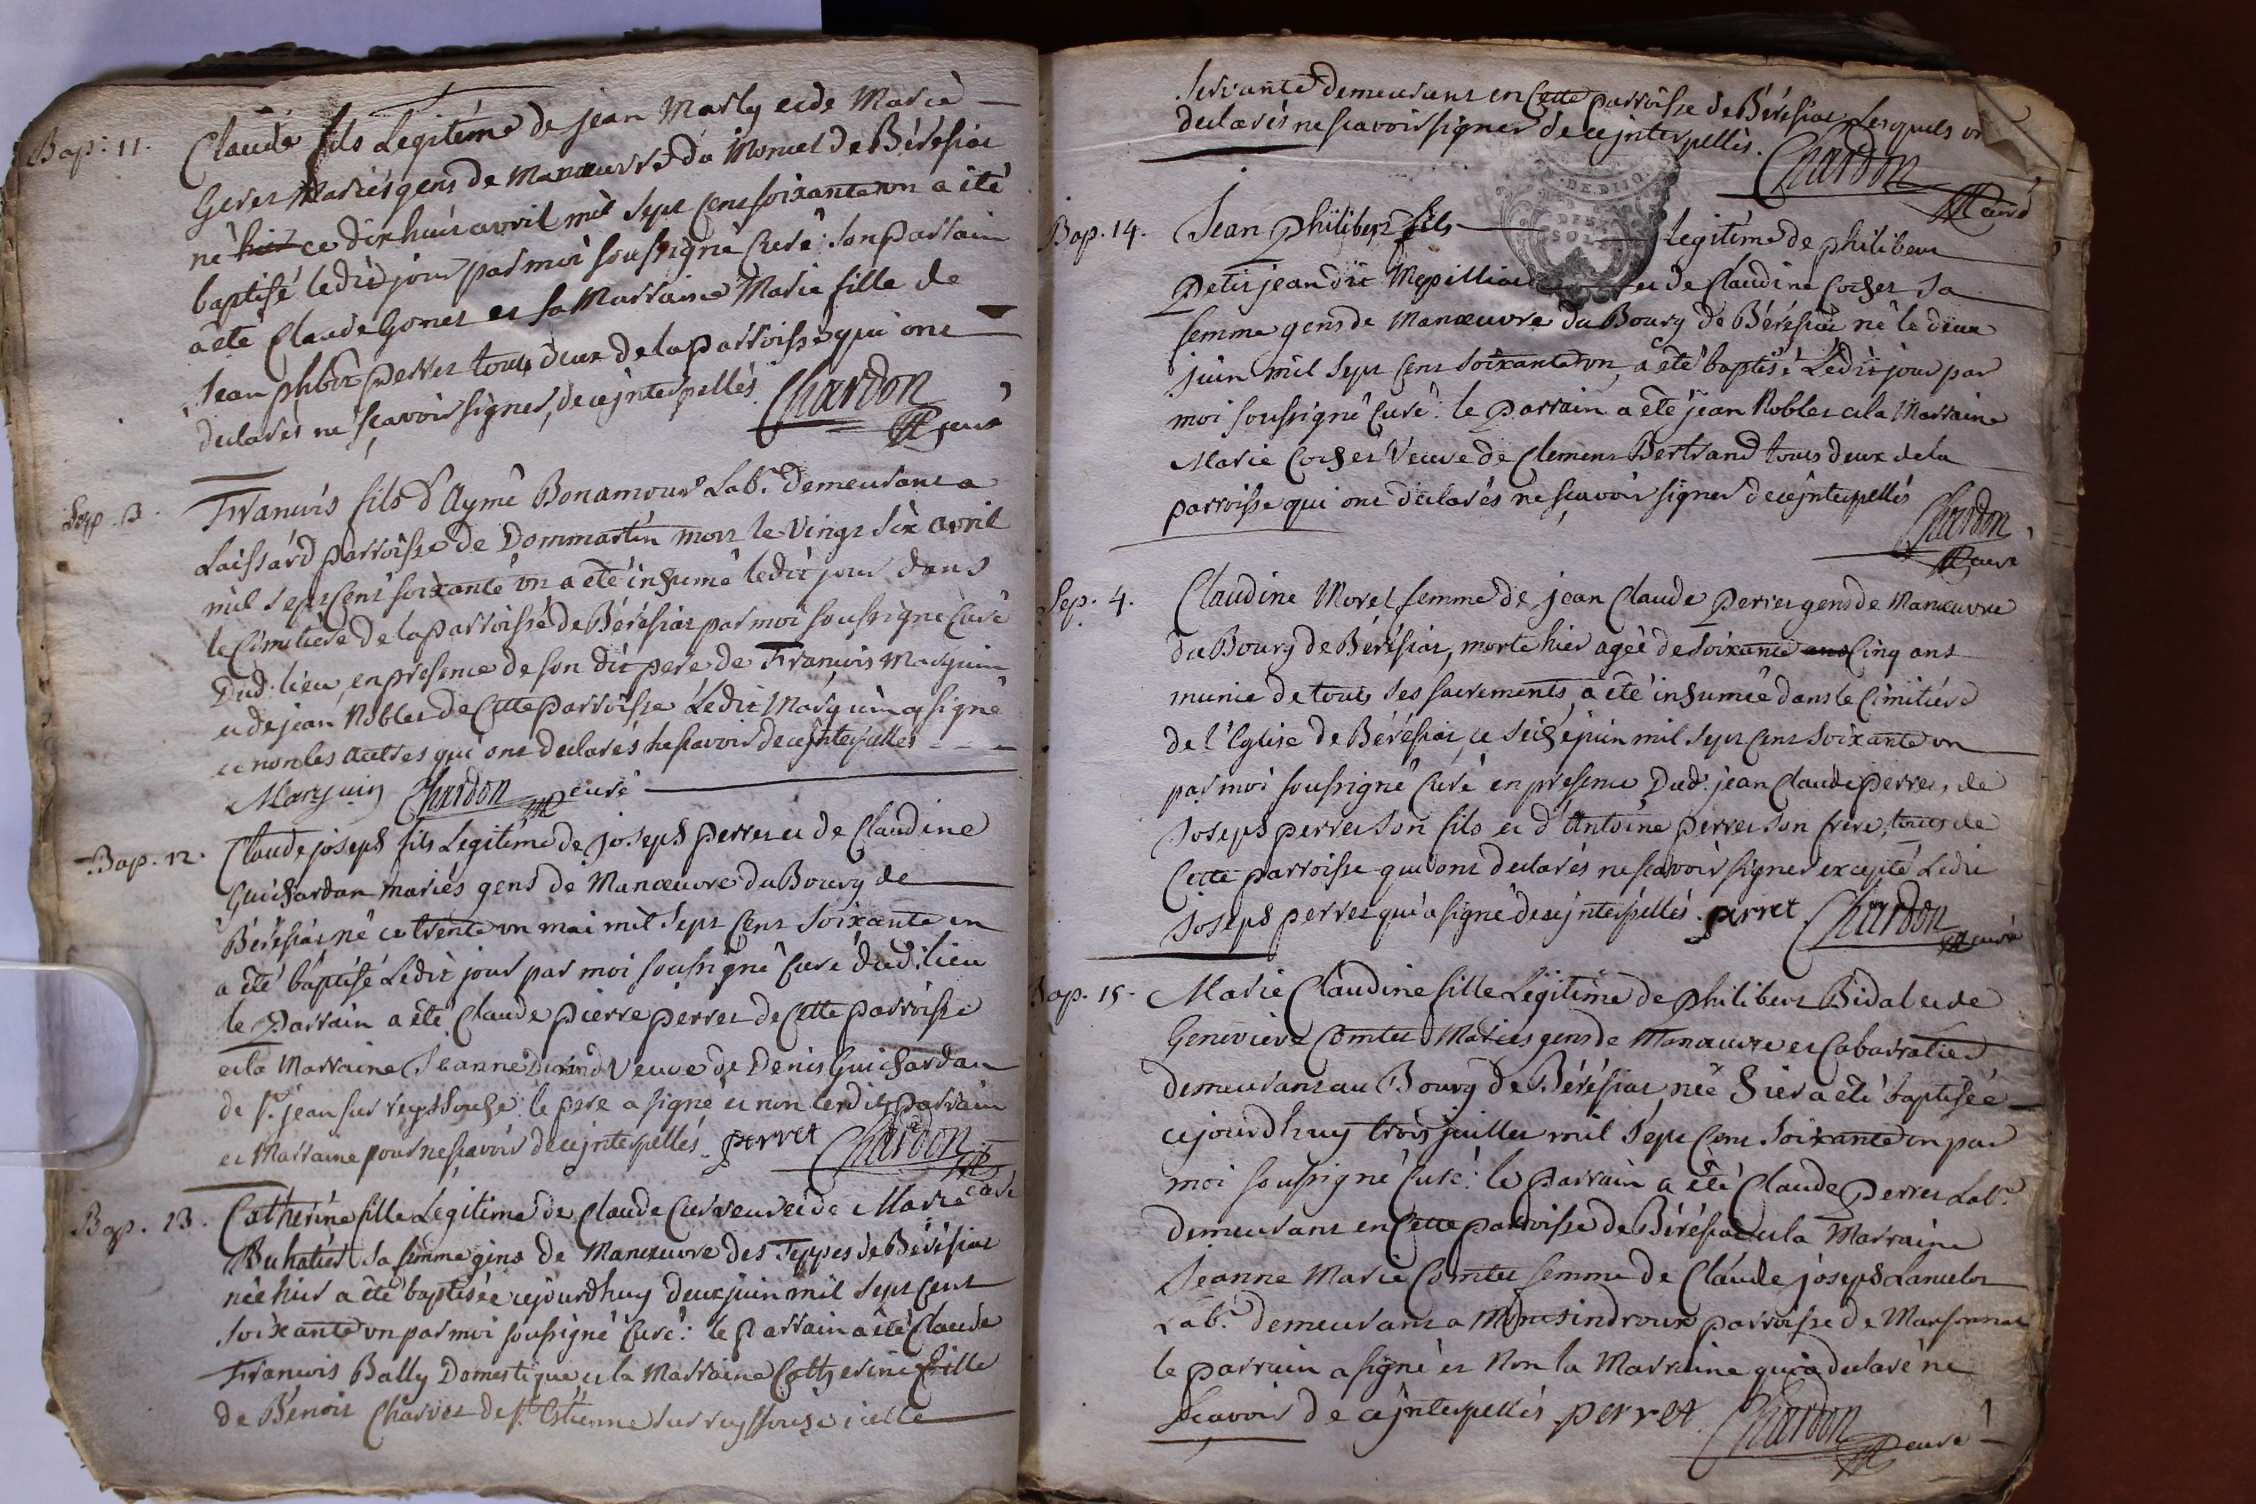 Bap. 11.
Claude fils Legitime de jean Marly et de Marie
Geret Mariés gens de Manœuvre du Moncel de Béréfiat
né hier ce dix huit avril mil sept cent soixante un a été
baptisé ledit jour par moi soussigné Curé : son parrain
a été Claude Gonet et sa Marraine Marie fille de
Jean phbert perret tous deux de la parroisse qui ont
declarés ne sçavoir signer, de ce jnterpellés Chardon
curé
Sep. 3.
Francois fils d'Aymé Bonamour Lab.r demeurant a
Laissard parroisse de Dommartin mort le vingt six avril
mil sept cent soixante un a été inhumé ledit jour dans
le Cimetiere de la parroisse de Béréfiat par moi soussigné Curé
Dud. lieu, en presence de son dit pere de Francois Marguin
et de jean Roblet de Cette parroisse Ledit Marguin a signé
et non les autres qui ont declarés ne sçavoir de ce jnterpellés
Marguin Chardon curé
Bap. 12.
Claude joseph fils Legitime de joseph perret et de Claudine
Guichardan mariés gens de Manœuvre du Bourg de
Béréfiat né ce trente un mai mil sept cent soixante un
a été baptisé Ledit jour par moi soussigné Curé dud. lieu
le Parrain a été Claude Pierre perret de Cette parroisse
et la Marraine Jeanne Veuve de Denis Guichardan
de St. jean sur reyssouse : le pere a signé et non lesdits parrain
et Marraine pour ne sçavoir de ce jnterpellés. perret Chardon
curé
Bap. 13.
Catherine fille Legitime de Claude et de Marie
Buhatier sa femme gens de Manœuvre des Teppes de Béréfiat
née hier a été baptisée cejourdhuy deux juin mil sept cent
soixante un par moi soussigné Curé : le Parrain a été Claude
Francois Bally Domestique et la Marraine Catherine fille
de Benoit Charvet de St. Estienne sur reyssouse icelle
servante demeurant en Cette parroisse de Béréfiat Lesquels
declarés ne scavoir signer de ce jnterpellés. Chardon
curé
Bap. 14.
Jean philibert fils legitime de philibert
Petitjean dit et de Claudine Cochet sa
femme gens de Manœuvre du Bourg de Béréfiat né le deux
juin mil sept cent soixante un, a été baptisé Ledit jour par
moi soussigné Curé : le parrain a été jean Roblet et la Marraine
Marie Cochet Veuve de Clement Bertrand tous deux de la
parroisse qui ont declarés ne scavoir signer de ce jnterpellés
Chardon
curé
Sep. 4.
Claudine Morel femme de jean Claude perret gens de Manœuvre
du Bourg de Béréfiat, morte hier agée de soixante ans Cinq ans
munie de tous ses sacrements, a été inhumée dans le Cimitiere
de l'Eglise de Béréfiat, ce seize juin mil sept cent soixante un
par moi soussigné Curé en presence Dud. jean Claude perret, de
Joseph perret son fils et d'Antoine perret son frere, tous de
Cette parroisse qui ont declarés ne scavoir signer excepté Ledit
Joseph perret qui a signé de ce jnterpellés. perret Chardon
curé
Bap. 15.
Marie Claudine fille Legitime de philibert Bidal et de
Genevieve Comtet Mariés gens de Manœuvre et Cabaratier
demeurant au Bourg de Béréfiat, née hier a été baptisée
cejourdhuy trois juillet mil sept cent soixante un par
moi soussigné Curé : le parrain a été Claude perret Lab.r
demeurant en Cette parroisse de Béréfiat et la Marraine
Jeanne Marie Comtet femme de Claude joseph Lancelot
Lab.r demeurant a Montsindroux parroisse de Marsonnat
le parrain a signé et Non la Marraine qui a declaré ne
scavoir de ce jnterpellés perret. Chardon
curé